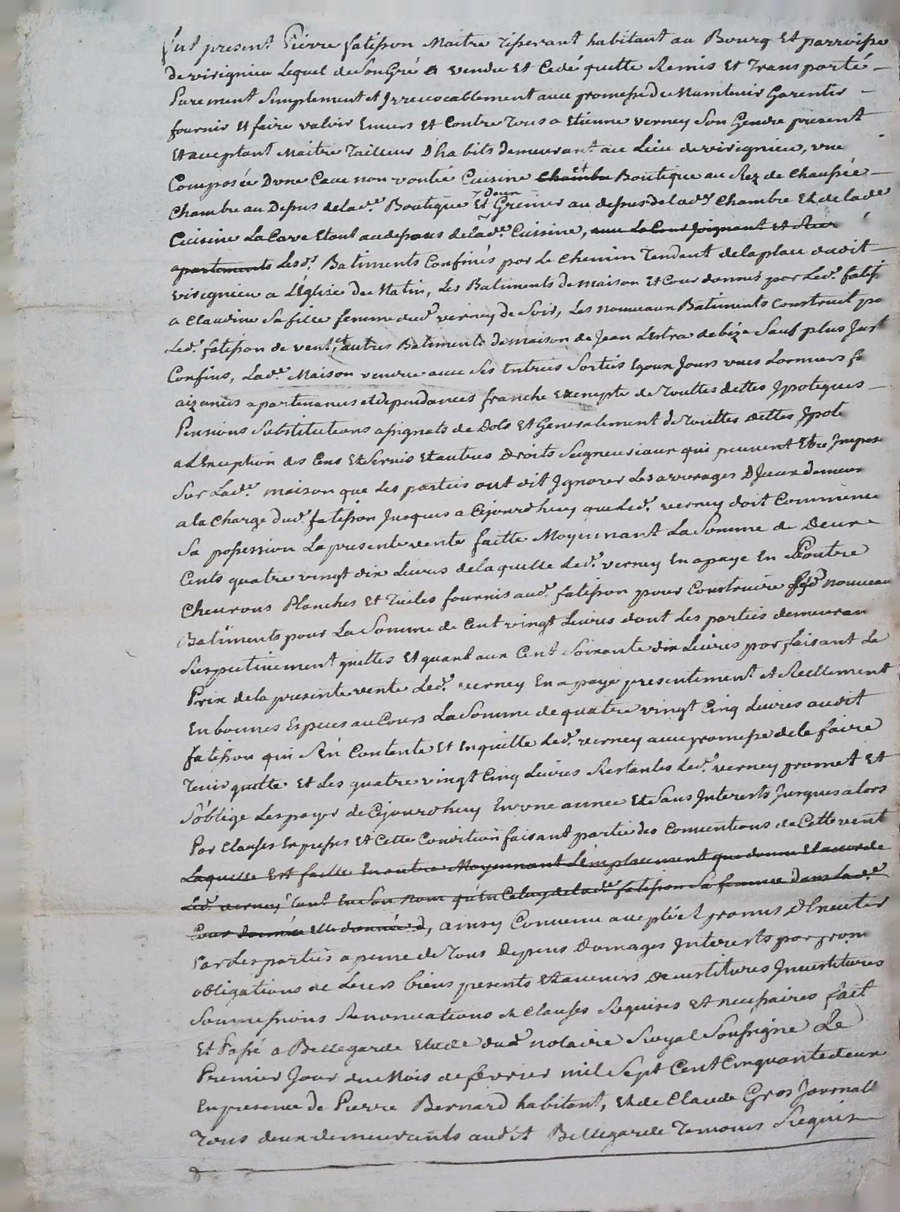 fut present Pierre fatisson Maitre Tisserant habitant au Bourg Et parroisse
de virignieu Lequel de Son Gré a vendu Et Cedé quitte Remis Et Transporté
Purement Simplement et Irrevocablement avec promesse de Maintenir Garentir
fournir Et faire valoir Envers Et Contre Tous a Etienne verney Son Gendre present
Et acceptant Maitre Tailleur Dhabits demeurant au Lieu de virignieu, une
Composée D'une Cave non voutée Cuisine et Boutique au Rez de Chaussée
Chambre au Dessus de lad.e Boutique Et Grenier au dessus de lad.e Chambre Et de lad.e
Cuisine La Cave Etant au dessous de lad.e Cuisine, avec La Cour Joignant et
apartements Lesd.s Batiments Confinés par Le Chemin Tendent de la place dudit
virignieu a L'Eglise de Matin, Les Batiments de Maison Et Cour donnés par Led.
a Claudine Sa fille femme dud. verney de Soir, Les nouveaux Batiments Construit
Led. fatisson de vent, autres Batiments de maison de Jean de bize Sauf plus Just
Confins, Lad.e Maison vendue avec Ses Entrées Sorties Jours vues Larmiers
aizances apartenances et dependances franche Exempte de Touttes dettes Ypoteques
Pensions Substitutions assignats de Dols Et Generalement de Touttes dettes Ypot
a L'Exception des Cens Et Servis Et autres Droits Seigneuriaux qui peuvent Etre Impose
Sur Lad.e maison que Les parties ont dit Ignorer Les arrerages D'Iceux
a la Charge dud. fatisson Jusques a Cejourdhuy que Led. verney doit Commence
Sa possession La presente vente faitte Moyennant La Somme de Deux
Cents quatre vingt dix Livres de laquelle Led. verney En a payé En
Chevrons Planches Et Tuiles fournis aud. fatisson pour Construire nouveaux
Batiments pour La Somme de Cent vingt Livres dont Les parties demeuran
Respectivement quittes Et quant aux Cent Soixante dix Livres parfaisant Le
Prix de la presente vente Led. verney En a payé presentement et Réellement
En bonnes Especes au Cours La Somme de quatre vingt Cinq Livres audit
fatisson qui S'En Contente Et En quitte Led. verney avec promesse de le faire
Tenir quitte Et Les quatre vingt Cinq Livres Restantes Led. verney promet Et
S'oblige Les payer de Cejourdhuy En une année Et Sans Interests Jusques alors
Par Clauses Expresses Et Cette Condition faisant partie des Conventions de Cette vent
Laquelle Est faitte En outre Moyennant L'Emplacement que donne Et accorde
Led. verney tant En Son Nom qu'En Celuy de lad.e fatisson Sa femme dans lad.e
Cour donnée, ainsy Convenu accepté et promis D'Executer
Par Les parties a peine de Tous Depens Domages Interests par
obligations de Leurs biens presents Et avenirs Devestitures Investitures
Soumissions Renonciations & Clauses Requises Et necessaires fait
Et Passé a Bellegarde Etude du d. notaire Royal Soussigné Le
Premier Jour du Mois de fevrier mil Sept Cent Cinquante deux
En presence de Pierre Bernard habitant, Et de Claude Gros Journall
Tous deux demeurants audit Bellegarde Temoins Requis